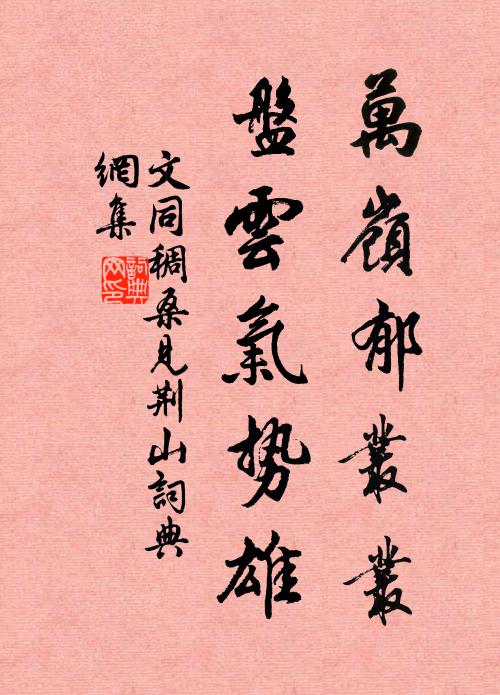 萬嶺郁叢叢
盤雲氣势雄
文同稠桑見荆山詞典
網集
詞典網印